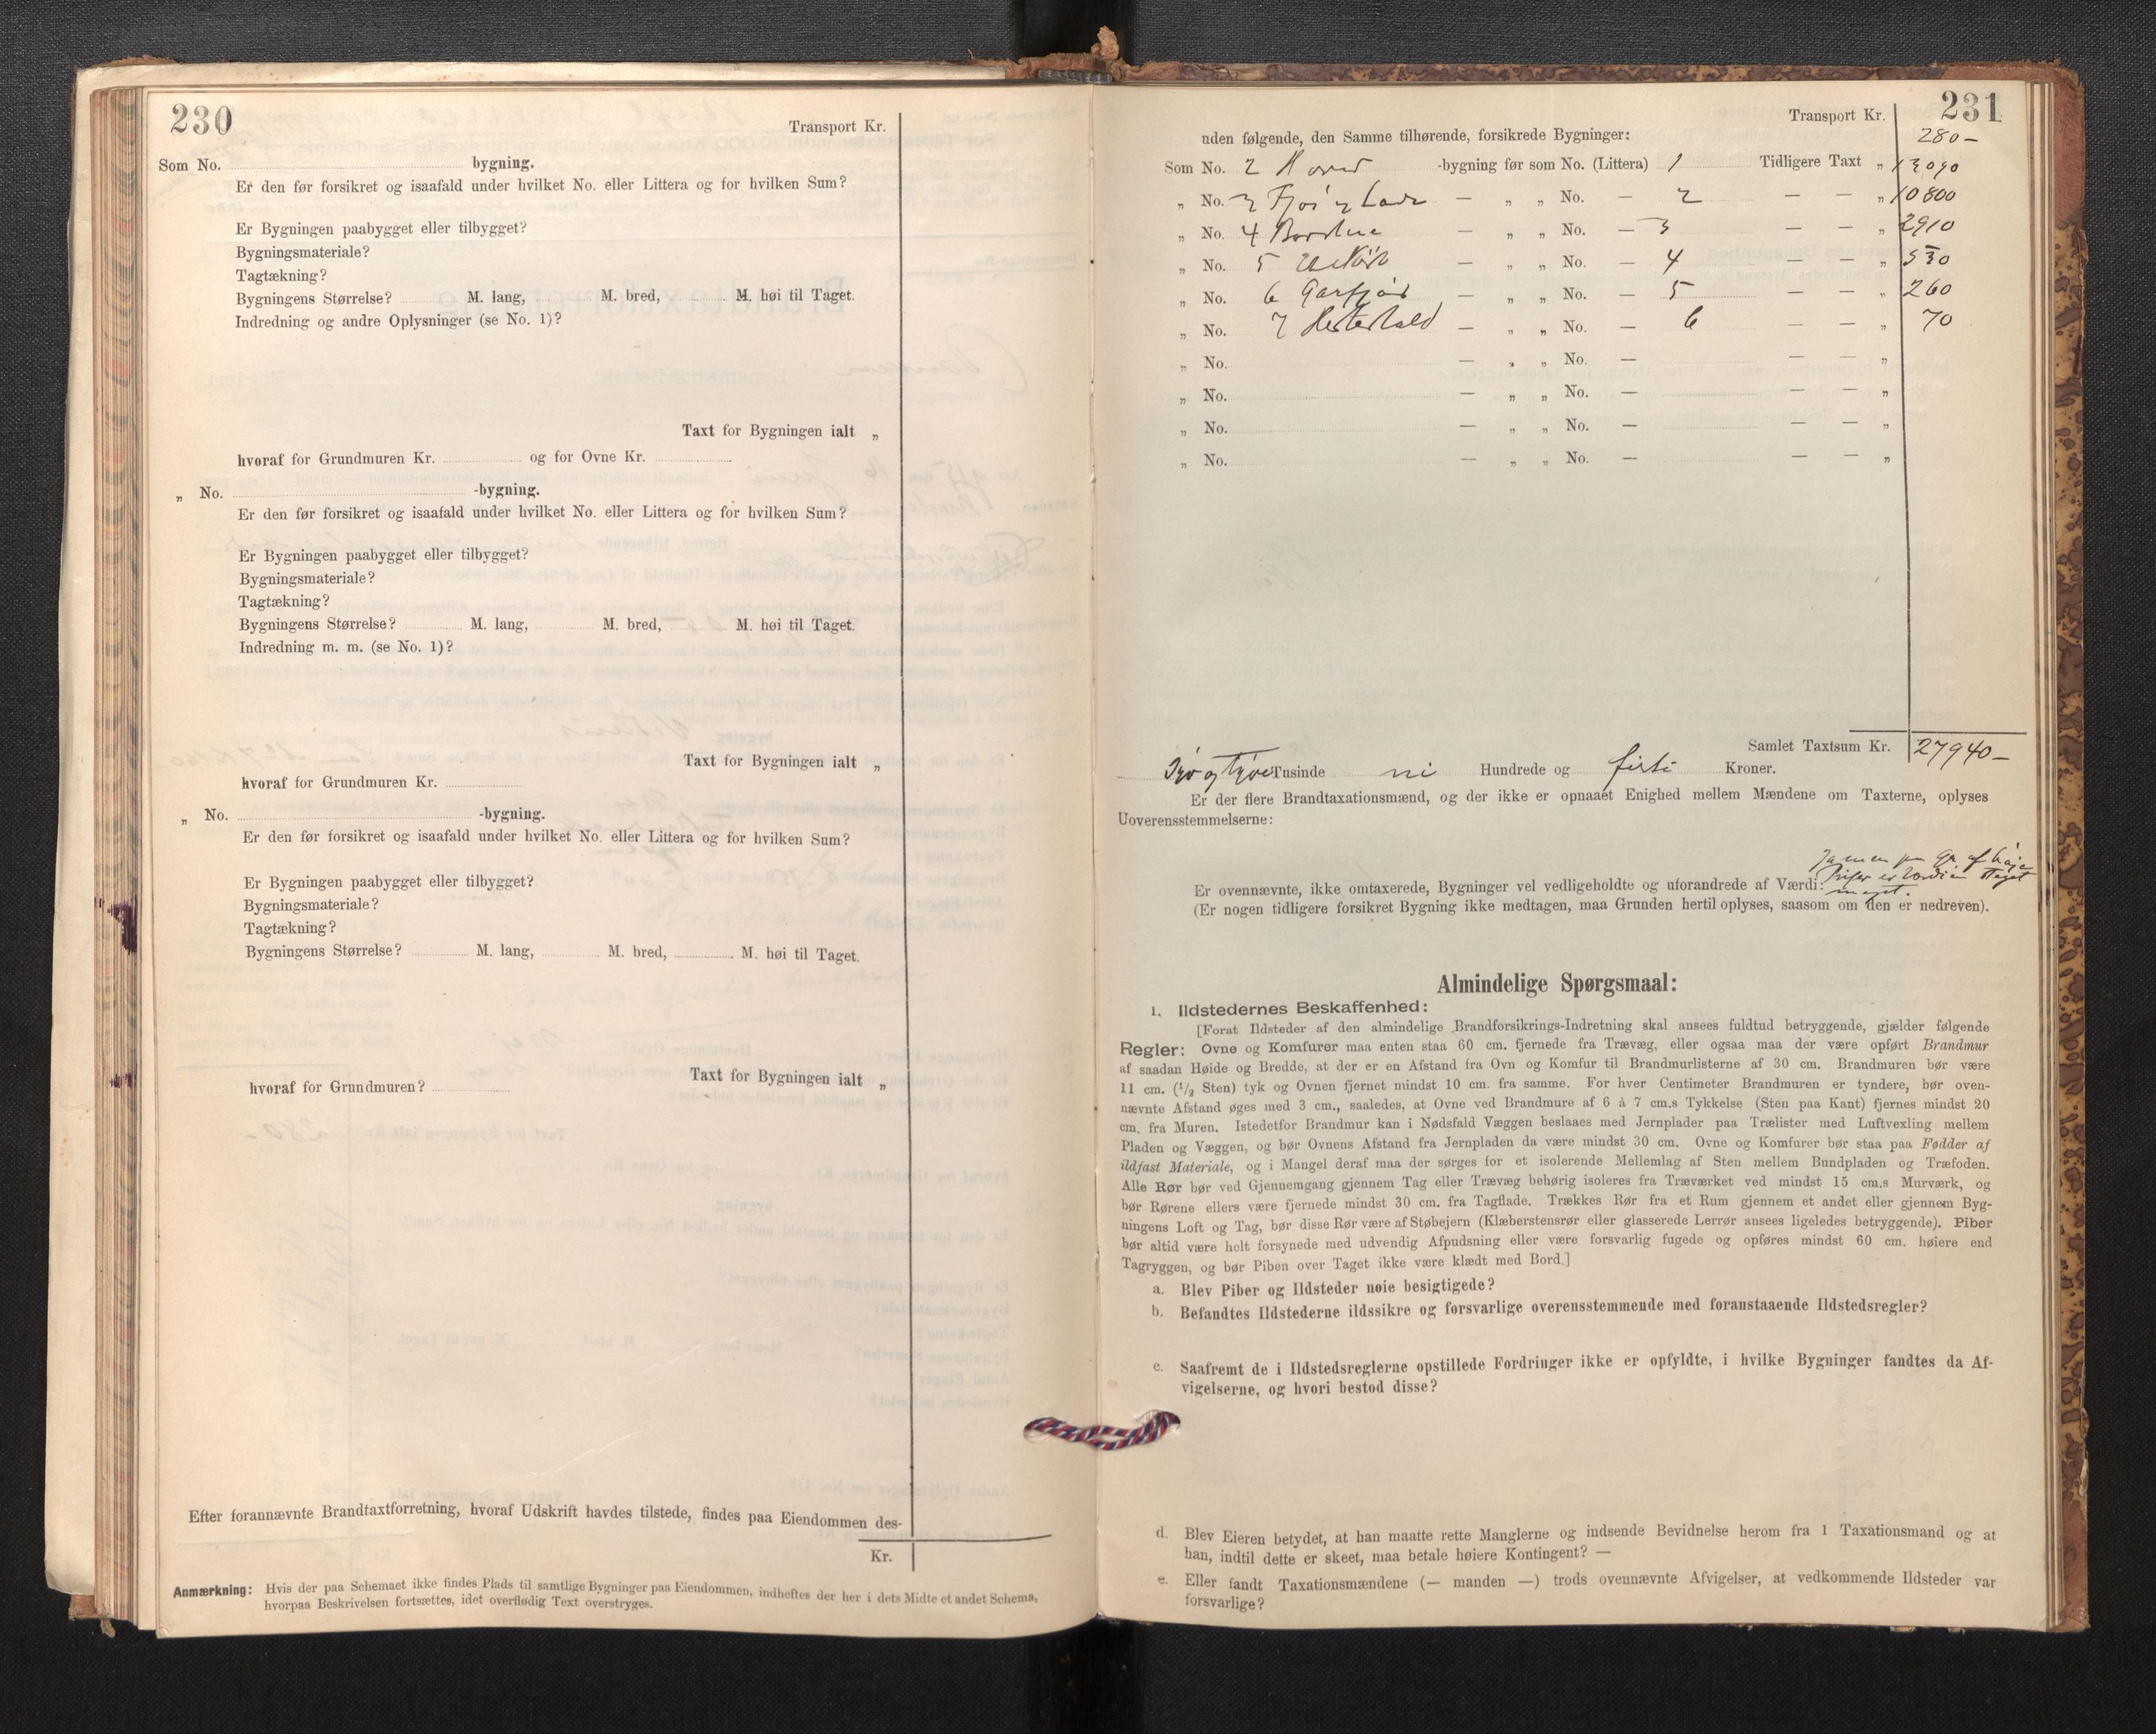 230
Transport Kr.
Som No. bygning.
Er den før forsikret og isaafald under hvilket No. eller Littera og for hvilken Sum?
Er Bygningen paabygget eller tilbygget?
Bygningsmateriale?
Tagtækning?
Bygningens Størrelse? M. lang, M. bred, M. høi til Taget.
Indredning og andre Oplysninger (se No. 1)?
Taxt for Bygningen ialt „
hvoraf for Grundmuren Kr. og for Ovne Kr.
„ No. -bygning.
Er den før forsikret og isaafald under hvilket No. eller Littera og for hvilken Sum?
Er Bygningen paabygget eller tilbygget?
Bygningsmateriale?
Tagtækning?
Bygningens Størrelse? M. lang, M. bred, M. høi til Taget.
Indredning m. m. (se No. 1)?
Taxt for Bygningen ialt „
hvoraf for Grundmuren Kr.
„ No. -bygning.
Er den før forsikret og isaafald under hvilket No. eller Littera og for hvilken Sum?
Er Bygningen paabygget eller tilbygget?
Bygningsmateriale?
Tagtækning?
Bygningens Størrelse? M. lang, M. bred, M. høi til Taget.
Taxt for Bygningen ialt „
hvoraf for Grundmuren?
Efter forannævnte Brandtaxtforretning, hvoraf Udskrift havdes tilstede, findes paa Eiendommen des-
Kr.
Anmærkning: Hvis der paa Schemaet ikke findes Plads til samtlige Bygninger paa Eiendommen, indheftes der her i dets Midte et andet Schema,
hvorpaa Beskrivelsen fortsættes, idet overflødig Text overstryges.
231
Transport Kr. 280 –
uden følgende, den Samme tilhørende, forsikrede Bygninger:
Som No. 2 -bygning før som No. (Littera) 1 Tidligere Taxt „ 13090
„ No. 3 Fjøs og Lade — „ „ No. — 2 — — „ 10800
„ No. 4 — „ „ No. — 3 — — „ 2910
„ No. 5 — „ „ No. — 4 — — „ 530
„ No. 6 — „ „ No. — 5 — — „ 260
„ No. 7 Hestestald — „ „ No. — 6 — — „ 70
„ No. — „ „ No. — — — „
„ No. — „ „ No. — — — „
„ No. — „ „ No. — — — „
„ No. — „ „ No. — — — „
Samlet Taxtsum Kr. 27940 –
Syv og tyve Tusinde ni Hundrede og firti Kroner.
Er der flere Brandtaxationsmænd, og der ikke er opnaaet Enighed mellem Mændene om Taxterne, oplyses
Uoverensstemmelserne:
Ja men paa Gr. af høie
Er ovennævnte, ikke omtaxerede, Bygninger vel vedligeholdte og uforandrede af Værdi: Priser er Værdien steget
meget.
(Er nogen tidligere forsikret Bygning ikke medtagen, maa Grunden hertil oplyses, saasom om den er nedreven).
Almindelige Spørgsmaal:
1. Ildstedernes Beskaffenhed:
[Forat Ildsteder af den almindelige Brandforsikrings-Indretning skal ansees fuldtud betryggende, gjælder følgende
Regler: Ovne og Komfurer maa enten staa 60 cm. fjernede fra Trævæg, eller ogsaa maa der være opført Brandmur
af saadan Høide og Bredde, at der er en Afstand fra Ovn og Komfur til Brandmurlisterne af 30 cm. Brandmuren bør være
11 cm. (1/2 Sten) tyk og Ovnen fjernet mindst 10 cm. fra samme. For hver Centimeter Brandmuren er tyndere, bør oven-
nævnte Afstand øges med 3 cm., saaledes, at Ovne ved Brandmure af 6 à 7 cm.s Tykkelse (Sten paa Kant) fjernes mindst 20
cm. fra Muren. Istedetfor Brandmur kan i Nødsfald Væggen beslaaes med Jernplader paa Trælister med Luftvexling mellem
Pladen og Væggen, og bør Ovnens Afstand fra Jernpladen da være mindst 30 cm. Ovne og Komfurer bør staa paa Fødder af
ildfast Materiale, og i Mangel deraf maa der sørges for et isolerende Mellemlag af Sten mellem Bundpladen og Træfoden.
Alle Rør bør ved Gjennemgang gjennem Tag eller Trævæg behørig isoleres fra Træværket ved mindst 15 cm.s Murværk, og
bør Rørene ellers være fjernede mindst 30 cm. fra Tagflade. Trækkes Rør fra et Rum gjennem et andet eller gjennem Byg-
ningens Loft og Tag, bør disse Rør være af Støbejern (Klæberstensrør eller glasserede Lerrør ansees ligeledes betryggende). Piber
bør altid være helt forsynede med udvendig Afpudsning eller være forsvarlig fugede og opføres mindst 60 cm. høiere end
Tagryggen, og bør Piben over Taget ikke være klædt med Bord.]
a. Blev Piber og Ildsteder nøie besigtigede?
b. Befandtes Ildstederne ildssikre og forsvarlige overensstemmende med foranstaaende Ildstedsregler?
c. Saafremt de i Ildstedsreglerne opstillede Fordringer ikke er opfyldte, i hvilke Bygninger fandtes da Af-
vigelserne, og hvori bestod disse?
d. Blev Eieren betydet, at han maatte rette Manglerne og indsende Bevidnelse herom fra 1 Taxationsmand og at
han, indtil dette er skeet, maa betale høiere Kontingent? —
e. Eller fandt Taxationsmændene (— manden —) trods ovennævnte Afvigelser, at vedkommende Ildsteder var
forsvarlige?